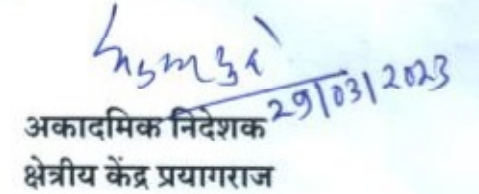 29/03/2023
अकादमिक निदेशक
क्षेत्रीय केंद्र प्रयागराज